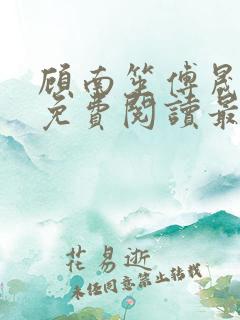 顾南笙傅晟
免費閱讀最
花易逝
未经同意禁止转载